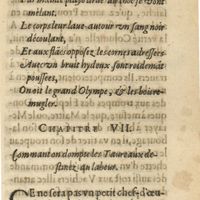 mélant.
Le corps leur laue autour vn sang noir
découlant,
Et aux flãcs opposez les cornes adressees
Auec vn bruit hydeux sont roidemẽt
poussees,
On oit le grand Olympe, & les bois re-
mugler.
CHAPITRE VII.
Commant on dompte les Taureaux de-
stinez au labour.
CE ne sera pas vn petit chef-d'œu-